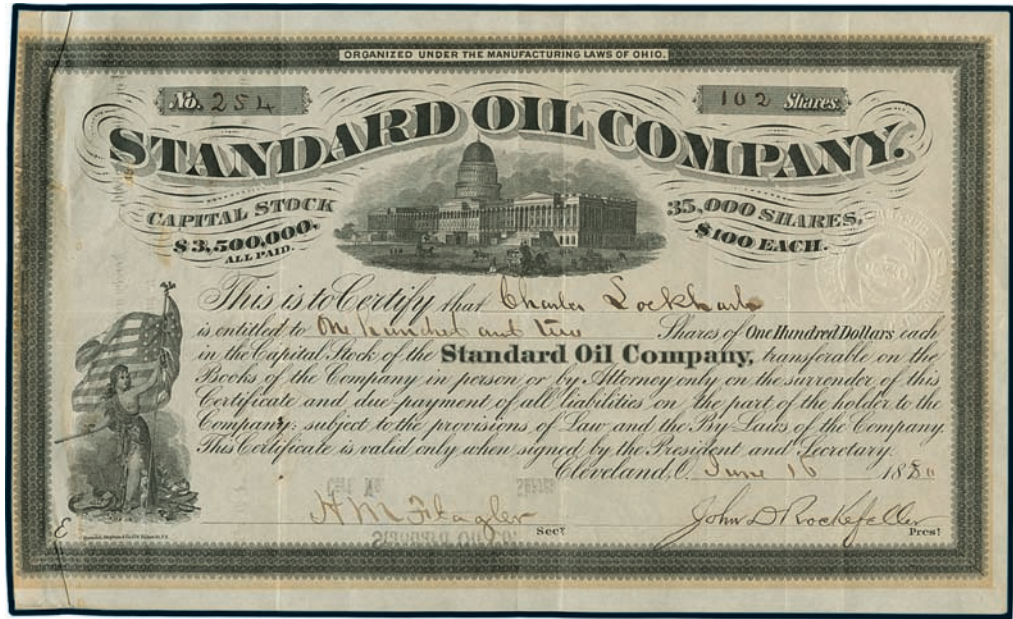 ORGANIZED UNDER THE MANUFACTURING LAWS OF OHIO.
No. 254
102 Shares.
STANDARD OIL COMPANY.
CAPITAL STOCK
$3,500,000,
ALL PAID.
35,000 SHARES,
$100 EACH.
This is to Certify that Charles Lockhart
is entitled to One hundred and two Shares of One Hundred Dollars each
in the Capital Stock of the Standard Oil Company, transferable on the
Books of the Company in person or by Attorney only on the surrender of this
Certificate and due payment of all liabilities on the part of the holder to the
Company; subject to the provisions of Law and the By-Laws of the Company.
This Certificate is valid only when signed by the President and Secretary.
Cleveland, O. June 16 1880
H M Flagler Secy
John D Rockefeller Prest